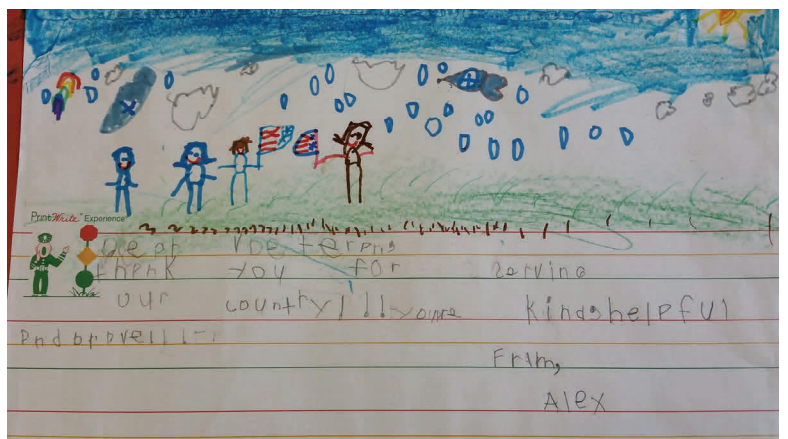 PrintWrite Experience
Dear Veterans
thank you for serving
our country!!! youre kind, helpful
and brave!!!
From,
Alex